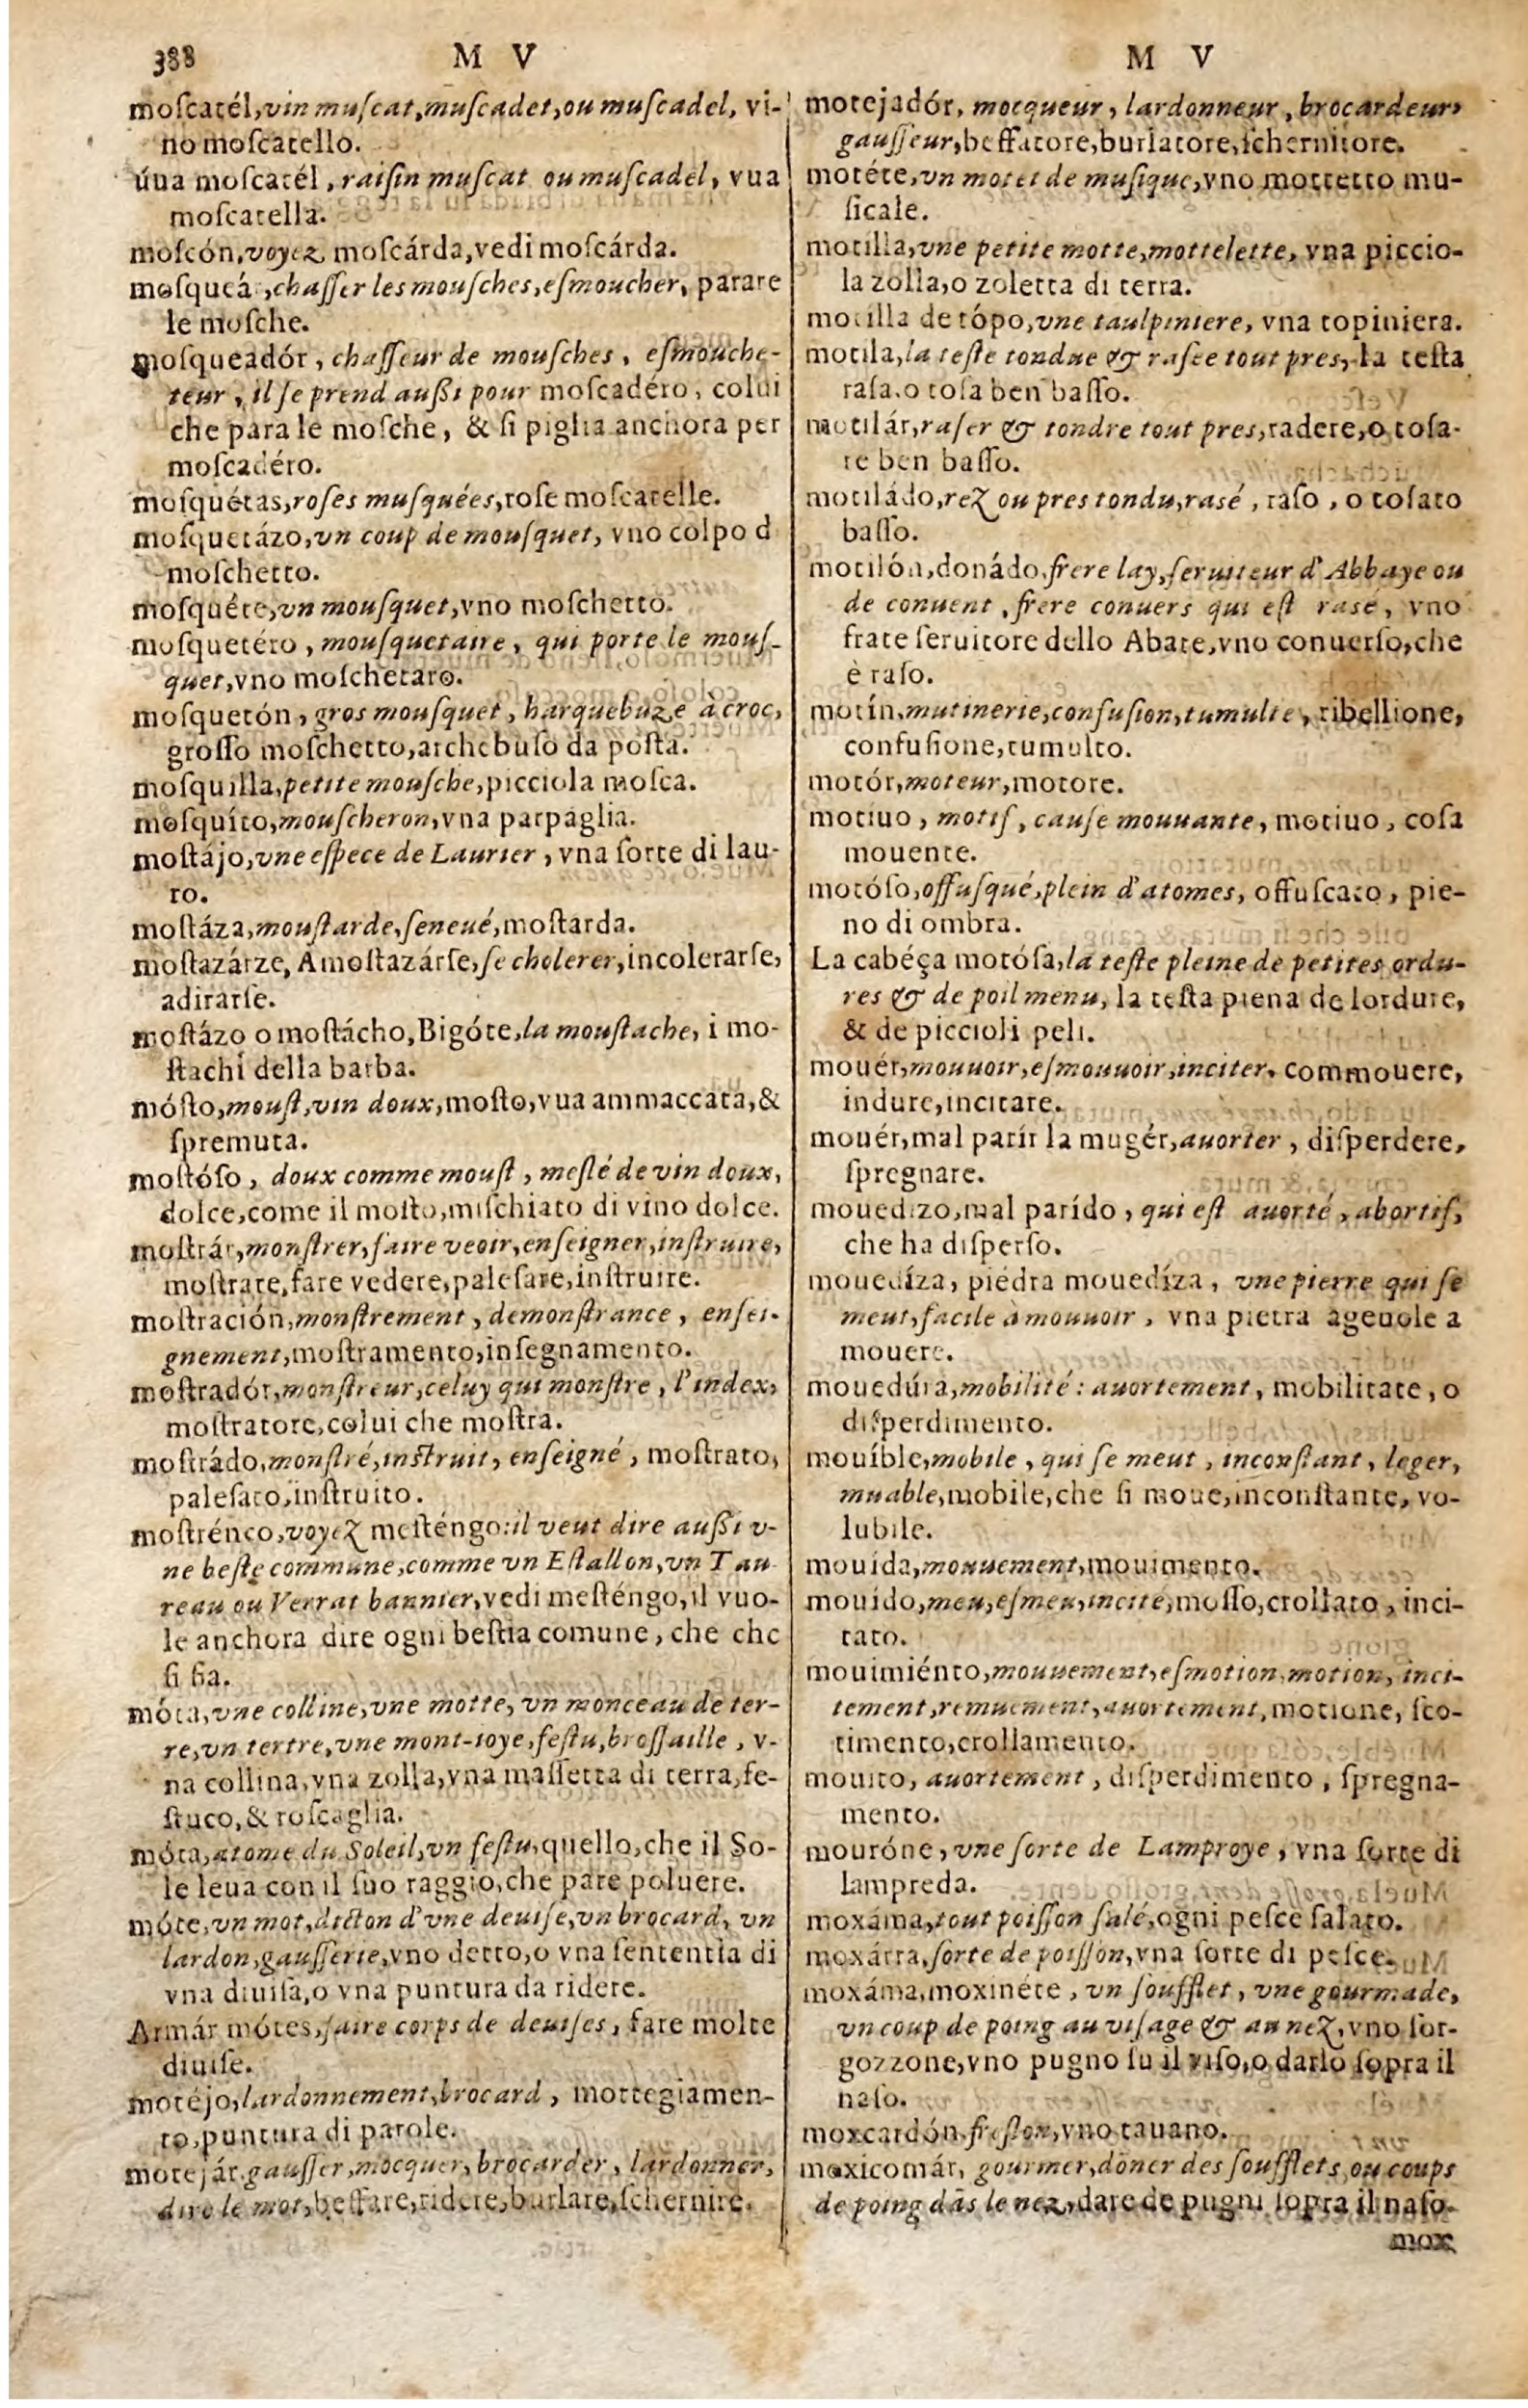 388 M V M V
moſcatél, vin muſcat, muſcadet, ou muſcadel, vi-
no moſcatello.
úua moſcatél, raiſin muſcat ou muſcadel, vua
moſcatella.
moſcón, voyez moſcárda, vedi moſcárda.
moſqueá, chaſſer les mouſches, eſmoucher, parare
le moſche.
moſqueadór, chaſſeur de mouſches, eſmouche-
teur, il ſe prend außi pour moſcadéro, colui
che para le moſche, & ſi piglia anchora per
moſcadéro.
moſquétas, roſes muſquées, roſe moſcatelle.
moſquetázo, vn coup de mouſquet, vno colpo d
moſchetto.
moſquéte, vn mouſquet, vno moſchetto.
moſquetéro, mouſquetaire, qui porte le mouſ-
quet, vno moſchetaro.
moſquetón, gros mouſquet, harquebuze à croc,
groſſo moſchetto, archebuſo da poſta.
moſquilla, petite mouſche, picciola moſca.
moſquíto, mouſcheron, vna parpaglia.
moſtájo, vne eſpece de Laurier, vna ſorte di lau-
ro.
moſtáza, mouſtarde, ſeneué, moſtarda.
moſtazárze, Amoſtazárſe, ſe cholerer, incolerarſe,
adirarſe.
moſtázo o moſtácho, Bigóte, la mouſtache, i mo-
ſtachi della barba.
móſto, mouſt, vin doux, moſto, vua ammaccata, &
ſpremuta.
moſtóſo, doux comme mouſt, meſlé de vin doux,
dolce, come il moſto, miſchiato di vino dolce.
moſtrár, monſtrer, faire veoir, enſeigner, inſtruire,
moſtrare, fare vedere, paleſare, inſtruire.
moſtración, monſtrement, demonſtrance, enſei-
gnement, moſtramento, inſegnamento.
moſtradór, monſtreur, celuy qui monſtre, l'index,
moſtratore, colui che moſtra.
moſtrádo, monſtré, inſtruit, enſeigné, moſtrato,
paleſato, inſtruito.
moſtrénco, voyez meſténgo: il veut dire außi v-
ne beſte commune, comme vn Eſtallon, vn Tau
reau ou Verrat bannier, vedi meſténgo, il vuo-
le anchora dire ogni beſtia comune, che che
ſi ſia.
móta, vne colline, vne motte, vn monceau de ter-
re, vn tertre, vne mont-ioye, feſtu, broſſaille, v-
na collina, vna zolla, vna maſſetta di terra, fe-
ſtuco, & roſcaglia.
móta, atome du Soleil, vn feſtu, quello, che il So-
le leua con il ſuo raggio, che pare poluere.
móte, vn mot, dicton d'vne deuiſe, vn brocard, vn
lardon, gauſſerie, vno detto, o vna ſententia di
vna diuiſa, o vna puntura da ridere.
Armár mótes, faire corps de deuiſes, fare molte
diuiſe.
motéjo, lardonnement, brocard, mottegiamen-
to, puntura di parole.
motejár, gauſſer, mocquer, brocarder, lardonner,
dire le mot, beffare, ridere, burlare, ſchernire.
motejadór, mocqueur, lardonneur, brocardeur,
gauſſeur, beffatore, burlatore, ſchernitore.
motéte, vn motet de muſique, vno mottetto mu-
ſicale.
motilla, vne petite motte, mottelette, vna piccio-
la zolla, o zoletta di terra.
motilla de tópo, vne taulpiniere, vna topiniera.
motila, la teſte tondue & raſée tout pres, la teſta
raſa, o toſa ben baſſo.
motilár, raſer & tondre tout pres, radere, o toſa-
re ben baſſo.
motiládo, rez ou pres tondu, rasé, raſo, o toſato
baſſo.
motilón, donádo, frere lay, ſeruiteur d'Abbaye ou
de conuent, frere conuers qui eſt rasé, vno
frate ſeruitore dello Abate, vno conuerſo, che
è raſo.
motín, mutinerie, confuſion, tumulte, ribellione,
confuſione, tumulto.
motór, moteur, motore.
motiuo, motif, cauſe mouuante, motiuo, coſa
mouente.
motóſo, offuſqué, plein d'atomes, offuſcato, pie-
no di ombra.
La cabéça motóſa, la teſte pleine de petites ordu-
res & de poil menu, la teſta piena de lordure,
& de piccioli peli.
mouér, mouuoir, eſmouuoir, inciter, commouere,
indure, incitare.
mouér, mal parír la mugér, auorter, diſperdere,
ſpregnare.
mouedizo, mal parído, qui eſt auorté, abortif,
che ha diſperſo.
mouedíza, piédra mouedíza, vne pierre qui ſe
meut, facile à mouuoir, vna pietra ageuole a
mouere.
mouedúra, mobilité: auortement, mobilitate, o
diſperdimento.
mouíble, mobile, qui ſe meut, inconſtant, leger,
muable, mobile, che ſi moue, inconſtante, vo-
lubile.
mouida, mouuement, mouimento.
mouído, meu, eſmeu, incité, moſſo, crollato, inci-
tato.
mouimiénto, mouuement, eſmotion, motion, inci-
tement, remuement, auortement, motione, ſco-
timento, crollamento.
mouito, auortement, diſperdimento, ſpregna-
mento.
mouróne, vne ſorte de Lamproye, vna ſorte di
lampreda.
moxáma, tout poiſſon ſalé, ogni peſce ſalato.
moxárra, ſorte de poiſſon, vna ſorte di peſce.
moxáma, moxinéte, vn ſoufflet, vne gourmade,
vn coup de poing au viſage & au nez, vno ſor-
gozzone, vno pugno ſu il viſo, o darlo ſopra il
naſo.
moxcardón, freſlon, vno tauano.
moxicomár, gourmer, dõner des ſoufflets, ou coups
de poing dãs le nez, dare de pugni ſopra il naſo.
mox